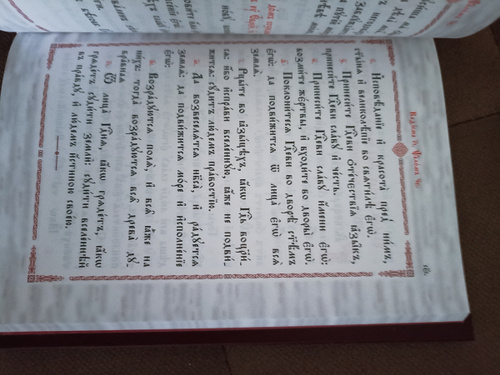 И҆сповѣ́данїе и҆ красота̀ пред̾ ни́мъ,
ст҃ы́нѧ и҆ великолѣ́пїе во свѧти́лѣ є҆гѡ̀.
Принеси́те Гдⷭ҇еви ѻ҆те́чествїѧ ꙗ҆зы́къ,
принеси́те Гдⷭ҇еви сла́вꙋ и҆ че́сть.
Принеси́те Гдⷭ҇еви сла́вꙋ и҆́мени є҆гѡ̀:
возми́те жє́ртвы, и҆ входи́те во дворы̀ є҆гѡ̀.
Поклони́тесѧ Гдⷭ҇еви во дворѣ̀ ст҃ѣ́мъ
є҆гѡ̀: да подви́житсѧ ѿ лица̀ є҆гѡ̀ всѧ̀
землѧ̀.
Рцы́те во ꙗ҆зы́цѣхъ, ꙗ҆́кѡ Гдⷭ҇ь воцр҃и́-
сѧ: и҆́бо и҆спра́ви вселе́ннꙋю, ꙗ҆́же не подви́-
житсѧ: сꙋ́дитъ лю́демъ пра́востїю.
Да возвеселѧ́тсѧ нб҃са̀, и҆ ра́дꙋетсѧ
землѧ̀: да подви́житсѧ мо́ре и҆ и҆сполне́нїе
є҆гѡ̀:
Возра́дꙋютсѧ полѧ̀, и҆ всѧ̑ ꙗ҆̀же на
ни́хъ: тогда̀ возра́дꙋютсѧ всѧ̑ древа̀ дꙋ-
бра̑внаѧ
Ѿ лица̀ Гдⷭ҇нѧ, ꙗ҆́кѡ грѧде́тъ, ꙗ҆́кѡ
грѧде́тъ сꙋди́ти землѝ: сꙋди́ти вселе́ннѣй
въ пра́вдꙋ, и҆ лю́демъ и҆́стиною свое́ю.